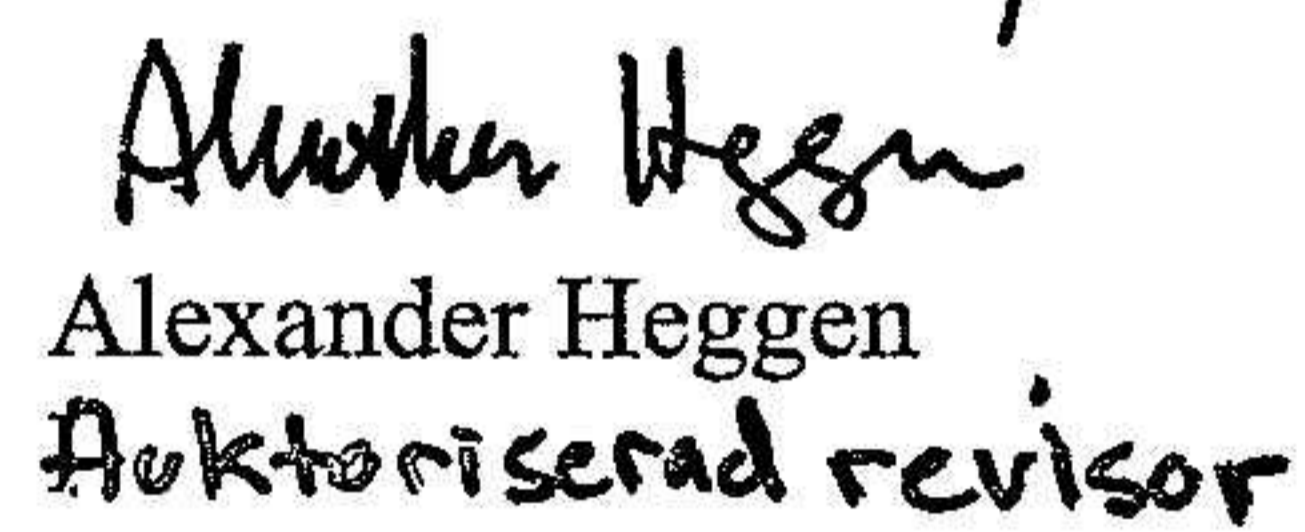 Alexander Heggen
Alexander Heggen
Auktoriserad revisor